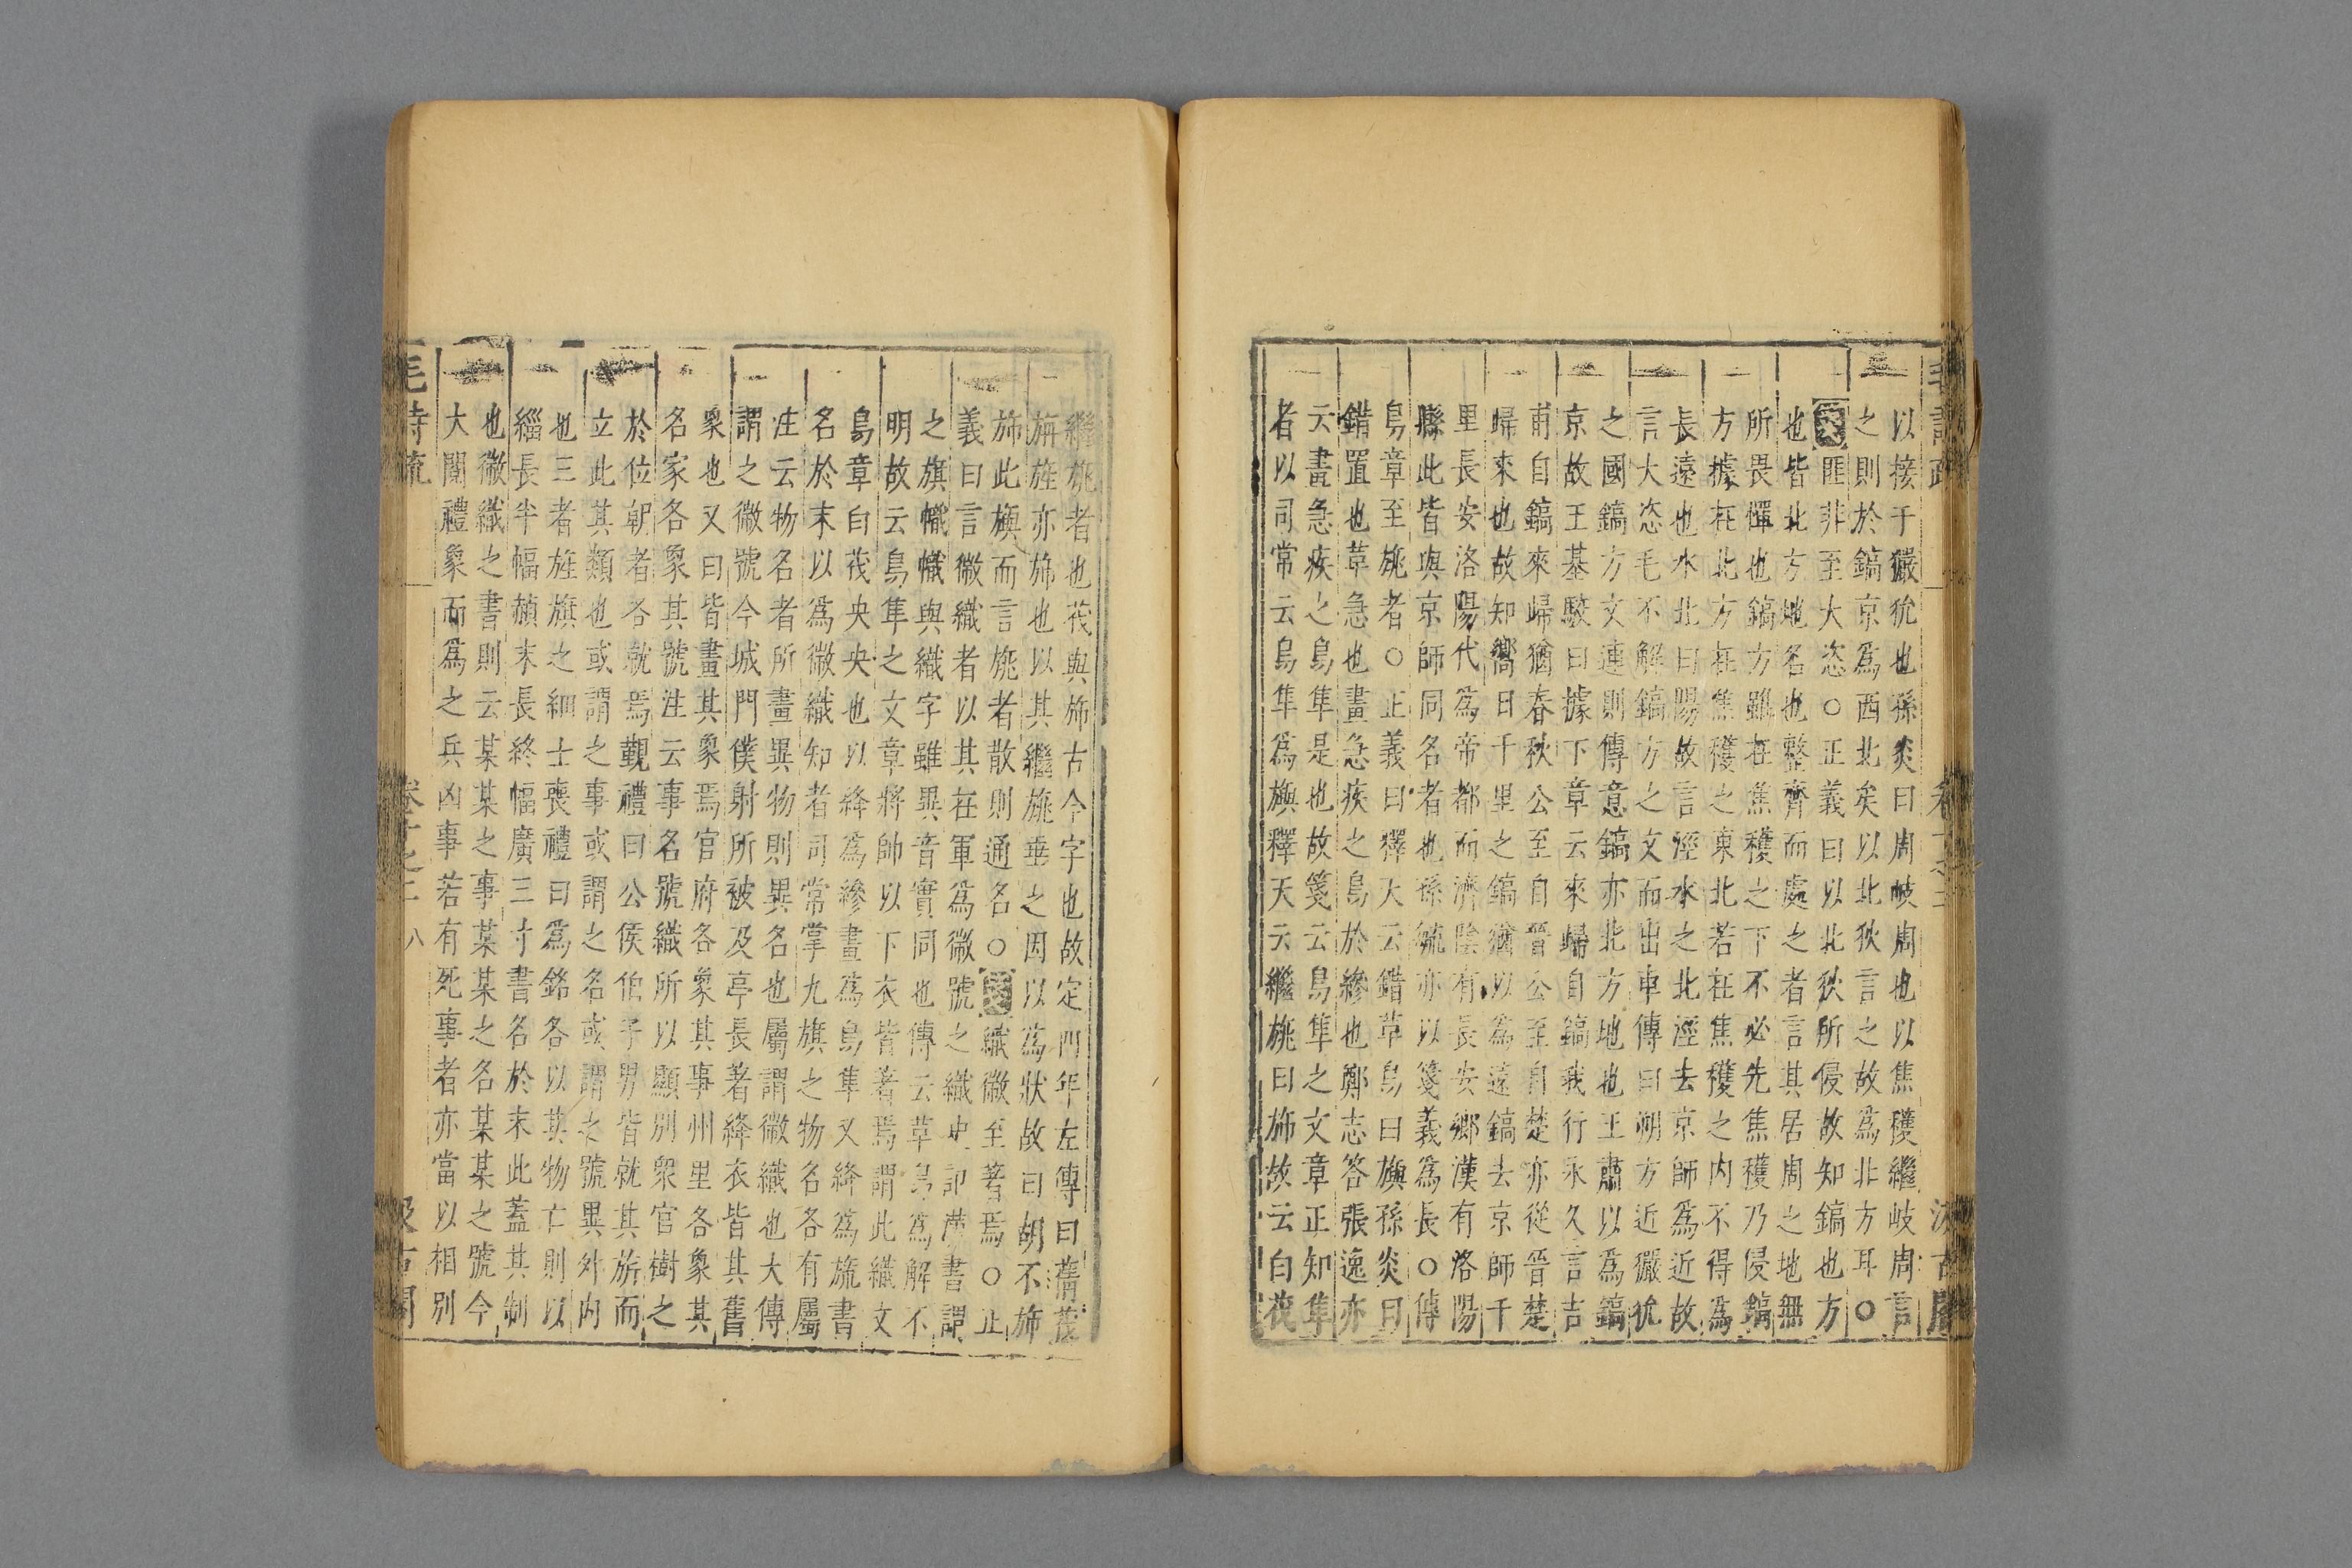 以接于玁狁也孫炎曰周岐周也以焦穫繼岐周言
之則於鎬京爲西北矣以北狄言之故爲北方耳○
匪非至大恣○正義曰以北狄所侵故知鎬也方
也皆北方地名也整齊而處之者言其居周之地無
所畏憚也鎬方雖在焦穫之下不必先焦穫乃侵鎬
方據在北方在焦穫之東北若在焦穫之内不得爲
長遠也水北曰陽故言涇水之北涇去京師爲近故
言大恣毛不解鎬方之文而出車傳曰朔方近玁狁
之國鎬方文連則傳意鎬亦北方地也王肅以爲鎬
京故王基駮曰據下章云來歸自鎬我行永久言吉
甫自鎬來歸猶春秋公至自晉公至自楚亦從晉楚
歸來也故知嚮日千里之鎬猶以爲遠鎬去京師千
里長安洛陽代爲帝都而濟陰有長安鄉漢有洛陽
縣此皆與京師同名者也孫毓亦以箋義爲長○傳
鳥章至旐者○正義曰釋天云錯革鳥曰旟孫炎曰
錯置也革急也畫急疾之鳥於縿也鄭志答張逸亦
云畫急疾之鳥隼是也故箋云鳥隼之文章正知隼
者以司常云鳥隼爲旟釋天云繼旐曰斾故云白茷
繼旐者也茷與斾古今字也故定四年左傳曰蒨茷
旃旌亦斾也以其繼旐垂之因以爲狀故曰胡不斾
斾此旟而言旐者散則通名○織徽至著焉○正
義曰言徽織者以其在軍爲徽號之織史記漢書謂
之旗幟幟與織字雖異音實同也傳云革鳥爲解不
明故云鳥隼之文章將帥以下衣皆著焉謂此織文
鳥章白茷央央也以絳爲縿畫爲鳥隼又絳爲旒書
名於末以爲徽織知者司常掌九旗之物名各有屬
注云物名者所畫異物則異名也屬謂徽織也大傳
謂之徽號今城門僕射所被及亭長著絳衣皆其舊
象也又曰皆畫其象焉官府各象其事州里各象其
名家各象其號注云事名號織所以顯別衆官樹之
於位朝者各就焉覲禮曰公侯伯子男皆就其旂而
立此其類也或謂之事或謂之名或謂之號異外内
也三者旌旗之細士喪禮曰爲銘各以其物亡則以
緇長半幅頳末長終幅廣三寸書名於末此蓋其制
也徽織之書則云某某之事某某之名某某之號今
大閱禮象而爲之兵凶事若有死事者亦當以相別
毛詩疏 卷十之二 八 汲古閣